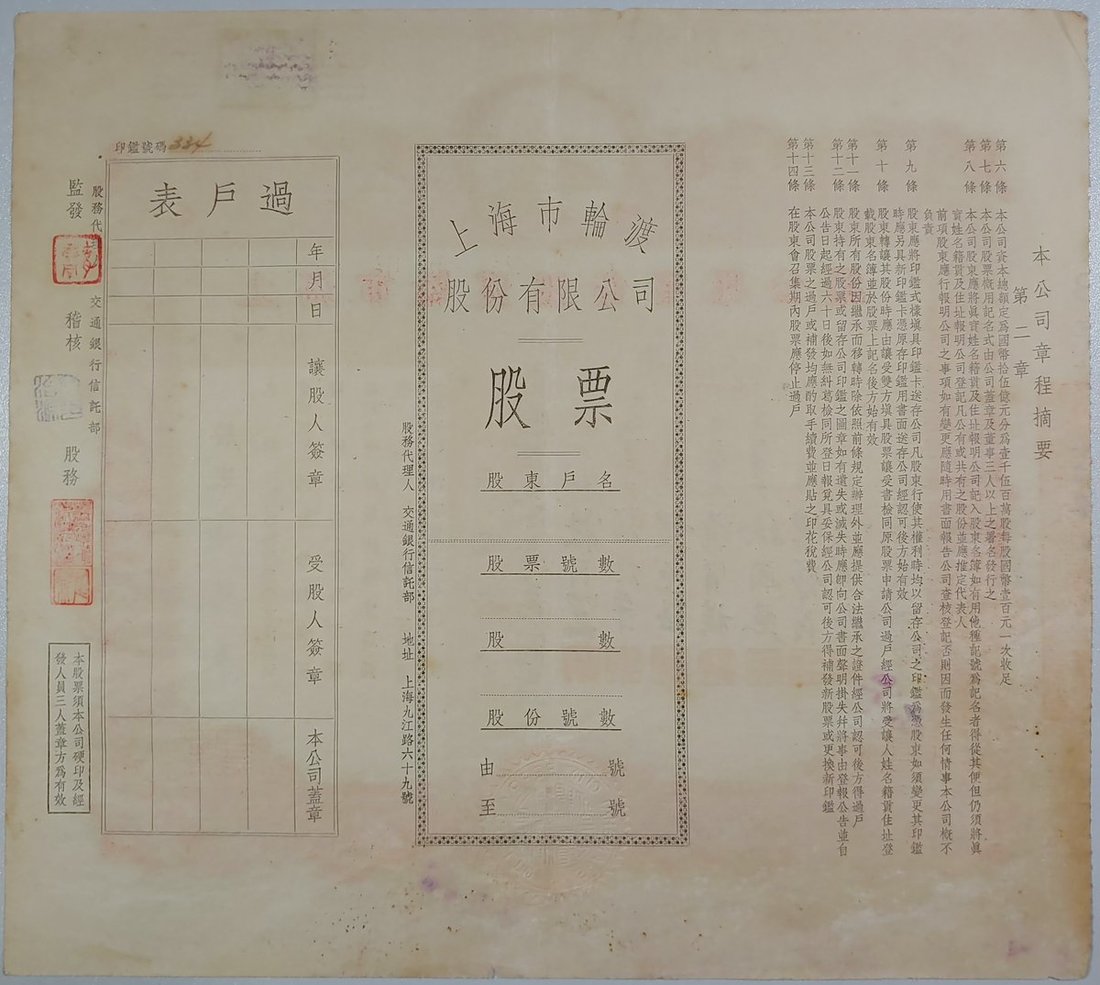 本公司章程摘要
第二章
第六條 本公司資本總額定為國幣拾伍億元分為壹千伍百萬股每股國幣壹百元一次收足
第七條 本公司股票概用記名式由公司蓋章及董事三人以上之署名發行之
第八條 本公司股東應將真實姓名籍貫及住址報明公司記入股東名簿如有用他種記號為記名者得從其便但仍須將真
實姓名籍貫及住址報明公司登記凡公有或共有之股份並應推定代表人
前項股東應行報明公司之事項如有變更應隨時用書面報告公司查核登記否則因而發生任何情事本公司概不
負責
第九條 股東應將印鑑式樣填具印鑑卡送存公司凡股東行使其權利時均以留存公司之印鑑為憑股東如須變更其印鑑
時應另具新印鑑卡憑原存印鑑用書面送存公司經認可後方始有效
第十條 股東轉讓其股份時應由讓受雙方填具股票讓受書檢同原股票申請公司過戶經公司將受讓人姓名籍貫住址登
載股東名簿並於股票上記名後方始有效
第十一條 股東所有股份因繼承而移轉時除依照前條規定辦理外並應提供合法繼承之證件經公司認可後方得過戶
第十二條 股東持有之股票或留存公司印鑑之圖章如有遺失或滅失時應即向公司書面聲明掛失并將事由登報公告並自
公告日起經過六十日後如無糾葛檢同所登日報覓具妥保經公司認可後方得補發新股票或更換新印鑑
第十三條 本公司股票之過戶或補發均應酌取手續費並應貼之印花稅費
第十四條 在股東會召集期內股票應停止過戶
上海市輪渡
股份有限公司
股票
股東戶名
股票號數
股數
股份號數
由 號
至 號
股務代理人 交通銀行信託部 地址 上海九江路六十九號
印鑑號碼 334
過戶表
年月日
讓股人簽章
受股人簽章
本公司蓋章
股務代 交通銀行信託部
監發 稽核 股務
本股票須本公司硬印及經
發人員三人蓋章方為有效